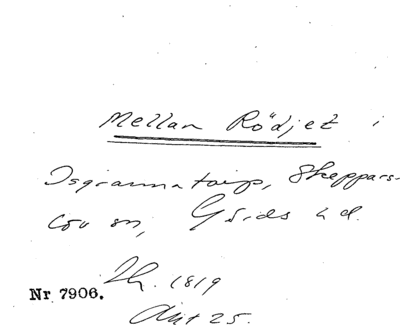 Mellan Rödjet i
Isgrannatorp, Skeppars-
löv sn, Gärds hd.
Lh. 1819
Nr 7906.
Akt 25.